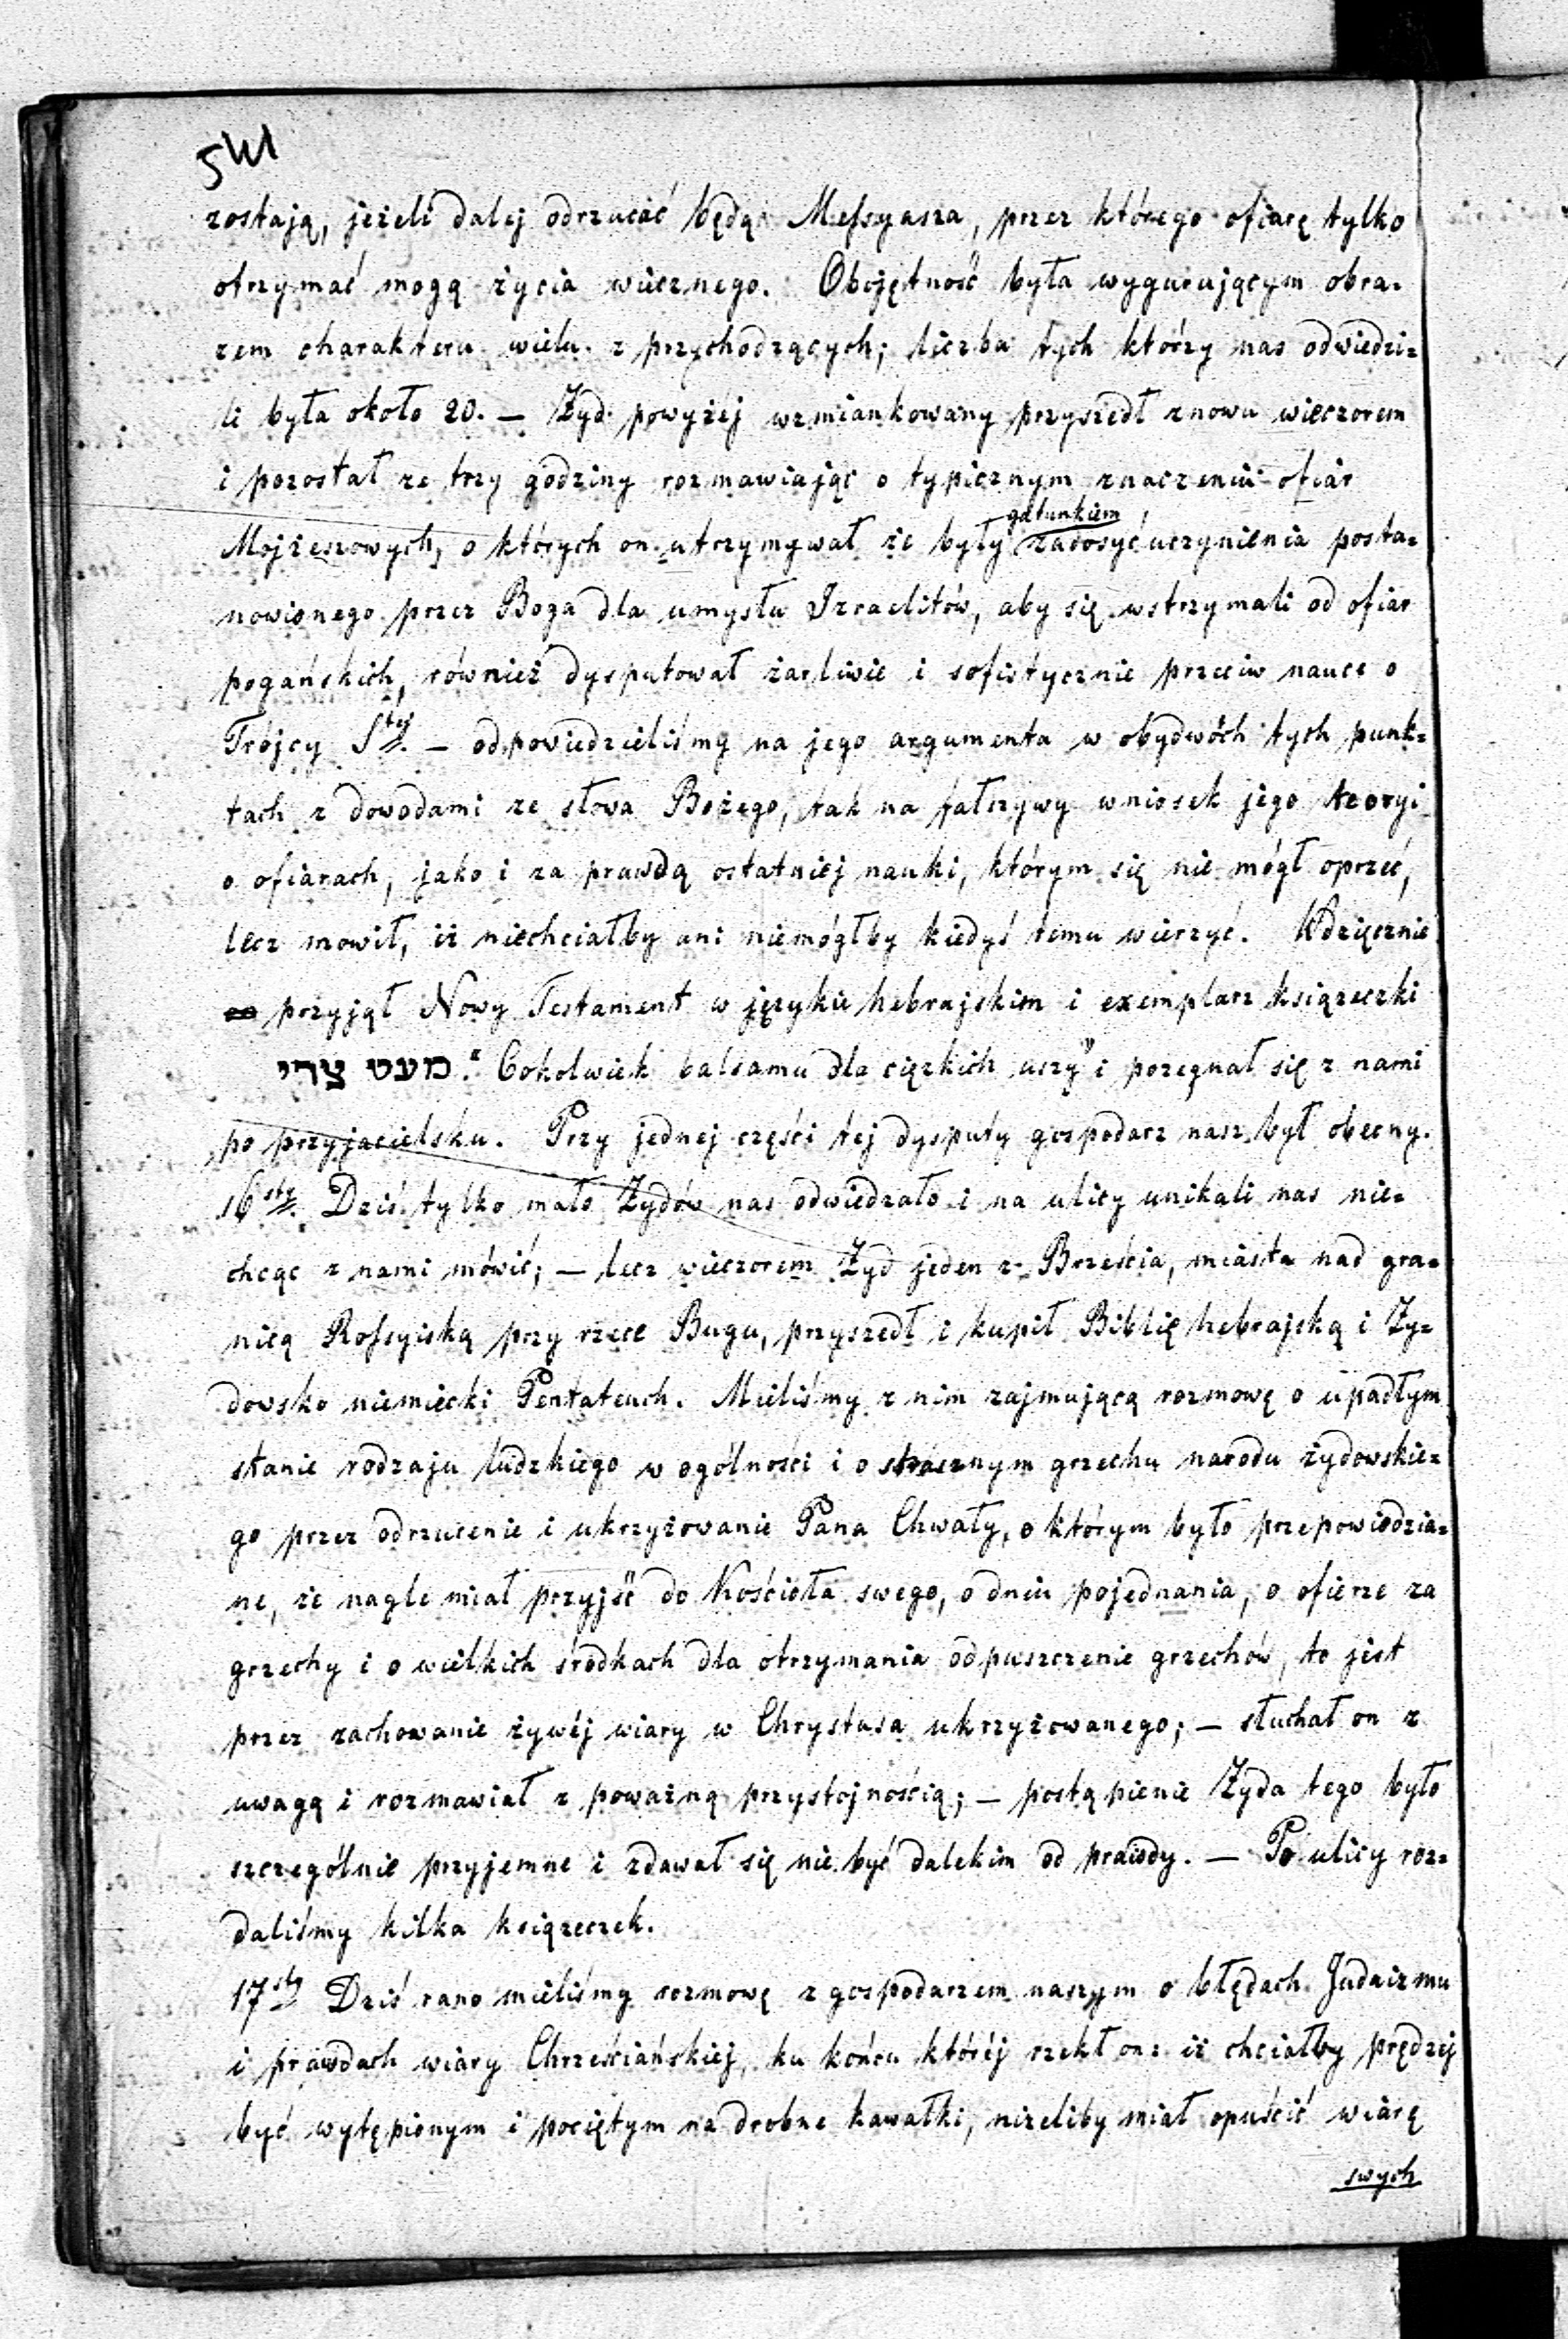 541
zostają, jeżeli dalej odrzucać będą Messyasza, przez którego ofiarę tylko
otrzymać mogą życia wiecznego. Obojętność była wygurującym obra-
zem charakteru wielu z przychodzących; liczba tych którzy nas odwiedzi-
li była około 20. — Żyd powyżej wzmiankowany przyszedł znowu wieczorem
i pozostał ze trzy godziny rozmawiając o typicznym znaczeniu ofiar
gatunkiem
Mojżeszowych, o których on utrzymywał że były zadosyćuczynienia posta-
nowionego przez Boga dla umysłu Izraelitów, aby się wstrzymali od ofiar
pogańskich, również dysputował żarliwie i sofistycznie przeciw nauce o
Trójcy Stéj. — odpowiedzieliśmy na jego argumenta w obydwóch tych punk-
tach z dowodami ze słowa Bożego, tak na fałszywy wniosek jego teoryi
o ofiarach, jako i za prawdą ostatniéj nauki, którym się nie mógł oprzeć,
lecz mowił, iż niechciałby ani niemógłby kiedyś temu wierzyć. Wdzięcznie
przyjął Nowy Testament w języku hebrajskim i exemplarz książeczki
מעט צרי. "Cokolwiek balsamu dla ciężkich uszy" i pożegnał się z nami
po przyjacielsku. Przy jednej części tej dysputy gospodarz nasz był obecny.
16sty. Dziś tylko mało Żydów nas odwiedzało i na ulicy unikali nas nie-
chcąc z nami mówić; — lecz wieczorem Żyd jeden z Brześcia, miasta nad gra-
nicą Rossyiską przy rzece Bugu, przyszedł i kupił Biblię hebrajską i Ży-
dowsko niemiecki Pentateuch. Mieliśmy z nim zajmującą rozmowę o upadłym
stanie rodzaju ludzkiego w ogólności i o strasznym grzechu narodu żydowskie-
go przez odrzucenie i ukrzyżowanie Pana Chwały, o którym było przepowiedzia-
ne, że nagle miał przyjść do Kościoła swego, o dniu pojednania, o ofierze za
grzechy i o wielkich środkach dla otrzymania odpuszczenie grzechów, to jest
przez zachowanie żywéj wiary w Chrystusa ukrzyżowanego; — słuchał on z
uwagą i rozmawiał z poważną przystojnością; — postąpienie Żyda tego było
szczególnie przyjemne i zdawał się nie być dalekim od prawdy. — Po ulicy roz-
daliśmy kilka książeczek.
17sty Dziś rano mieliśmy rozmowę z gospodarzem naszym o błędach Judaizmu
i prawdach wiary Chrześciańskiej, ku końcu któréj rzekł on: iż chciałby prędzej
być wytępionym i pociętym na drobne kawałki, niżeliby miał opuścić wiarę
swych